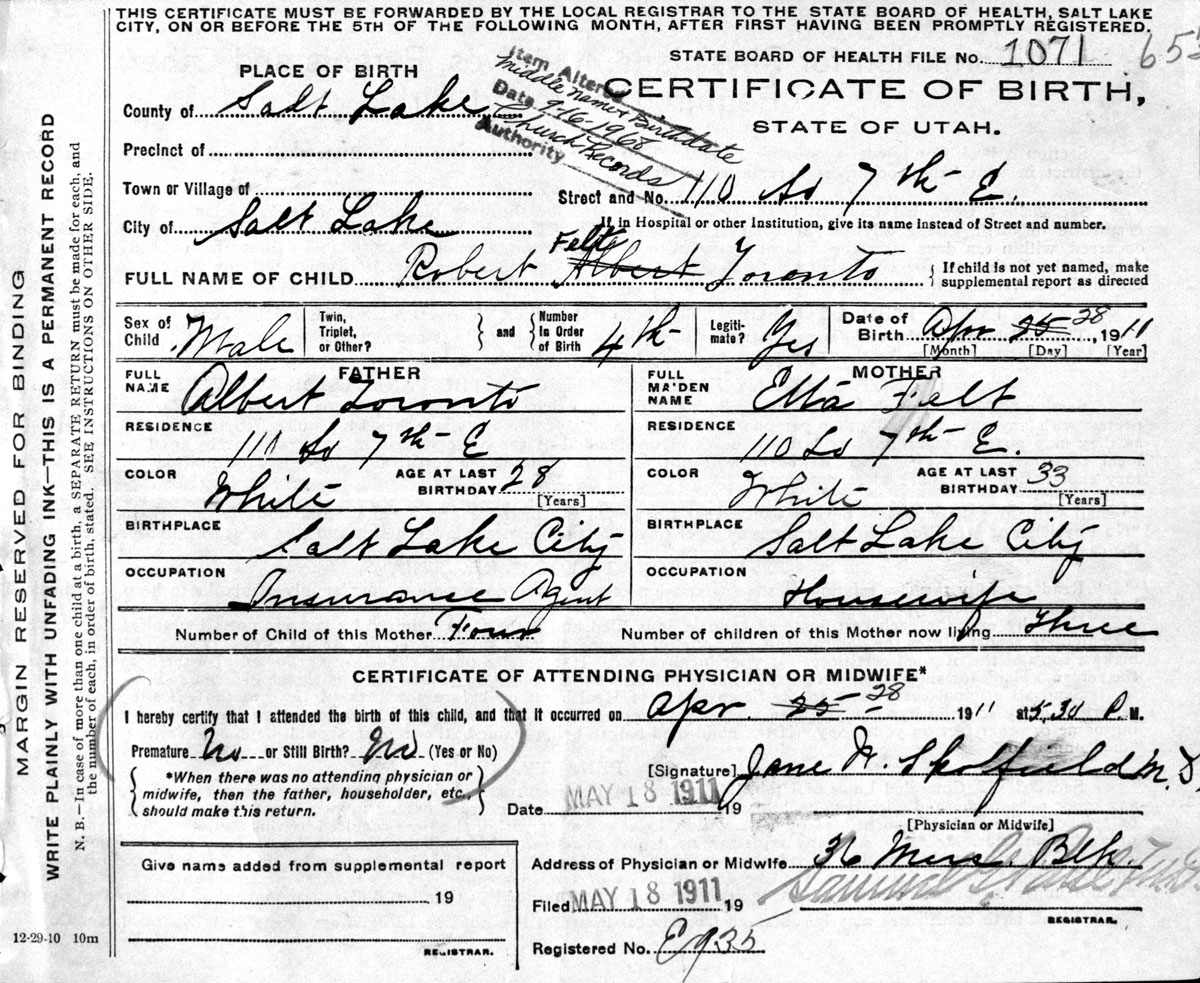 THIS CERTIFICATE MUST BE FORWARDED BY THE LOCAL REGISTRAR TO THE STATE BOARD OF HEALTH, SALT LAKE
CITY, ON OR BEFORE THE 5TH OF THE FOLLOWING MONTH, AFTER FIRST HAVING BEEN PROMPTLY REGISTERED.
STATE BOARD OF HEALTH FILE No. 1071 655
PLACE OF BIRTH
CERTIFICATE OF BIRTH,
STATE OF UTAH.
Item Altered
middle name & Birthdate
Data 9-16-1968
Church Records
Authority
County of Salt Lake
Precinct of
Town or Village of
Street and No. 110 So 7th E.
City of Salt Lake
If in Hospital or other Institution, give its name instead of Street and number.
Felt
FULL NAME OF CHILD Robert Albert Toronto
If child is not yet named, make
supplemental report as directed
Sex of Child Male
Twin, Triplet, or Other?
and
Number In Order of Birth 4th
Legitimate? Yes
Date of Birth Apr 25 28, 1911
[Month] [Day] [Year]
FATHER
FULL NAME Albert Toronto
RESIDENCE 110 So 7th E
COLOR White
AGE AT LAST BIRTHDAY 28
[Years]
BIRTHPLACE Salt Lake City
OCCUPATION Insurance Agent
MOTHER
FULL MAIDEN NAME Etta Felt
RESIDENCE 110 So 7th E.
COLOR White
AGE AT LAST BIRTHDAY 33
[Years]
BIRTHPLACE Salt Lake City
OCCUPATION Housewife
Number of Child of this Mother Four
Number of children of this Mother now living Three
CERTIFICATE OF ATTENDING PHYSICIAN OR MIDWIFE*
I hereby certify that I attended the birth of this child, and that it occurred on Apr. 25 28 1911 at 5.30 P. M.
Premature No or Still Birth? No (Yes or No)
*When there was no attending physician or
midwife, then the father, householder, etc.,
should make this return.
[Signature] Jane W. Skolfield M.D.
Date MAY 18 1911 19
[Physician or Midwife]
Give name added from supplemental report
19
REGISTRAR.
Address of Physician or Midwife 36 Merc. Blk.
Filed MAY 18 1911 19
REGISTRAR.
Registered No. E935
12-29-10 10m
MARGIN RESERVED FOR BINDING
WRITE PLAINLY WITH UNFADING INK—THIS IS A PERMANENT RECORD
N. B.—In case of more than one child at a birth, a SEPARATE RETURN must be made for each, and
the number of each, in order of birth, stated. SEE INSTRUCTIONS ON OTHER SIDE.